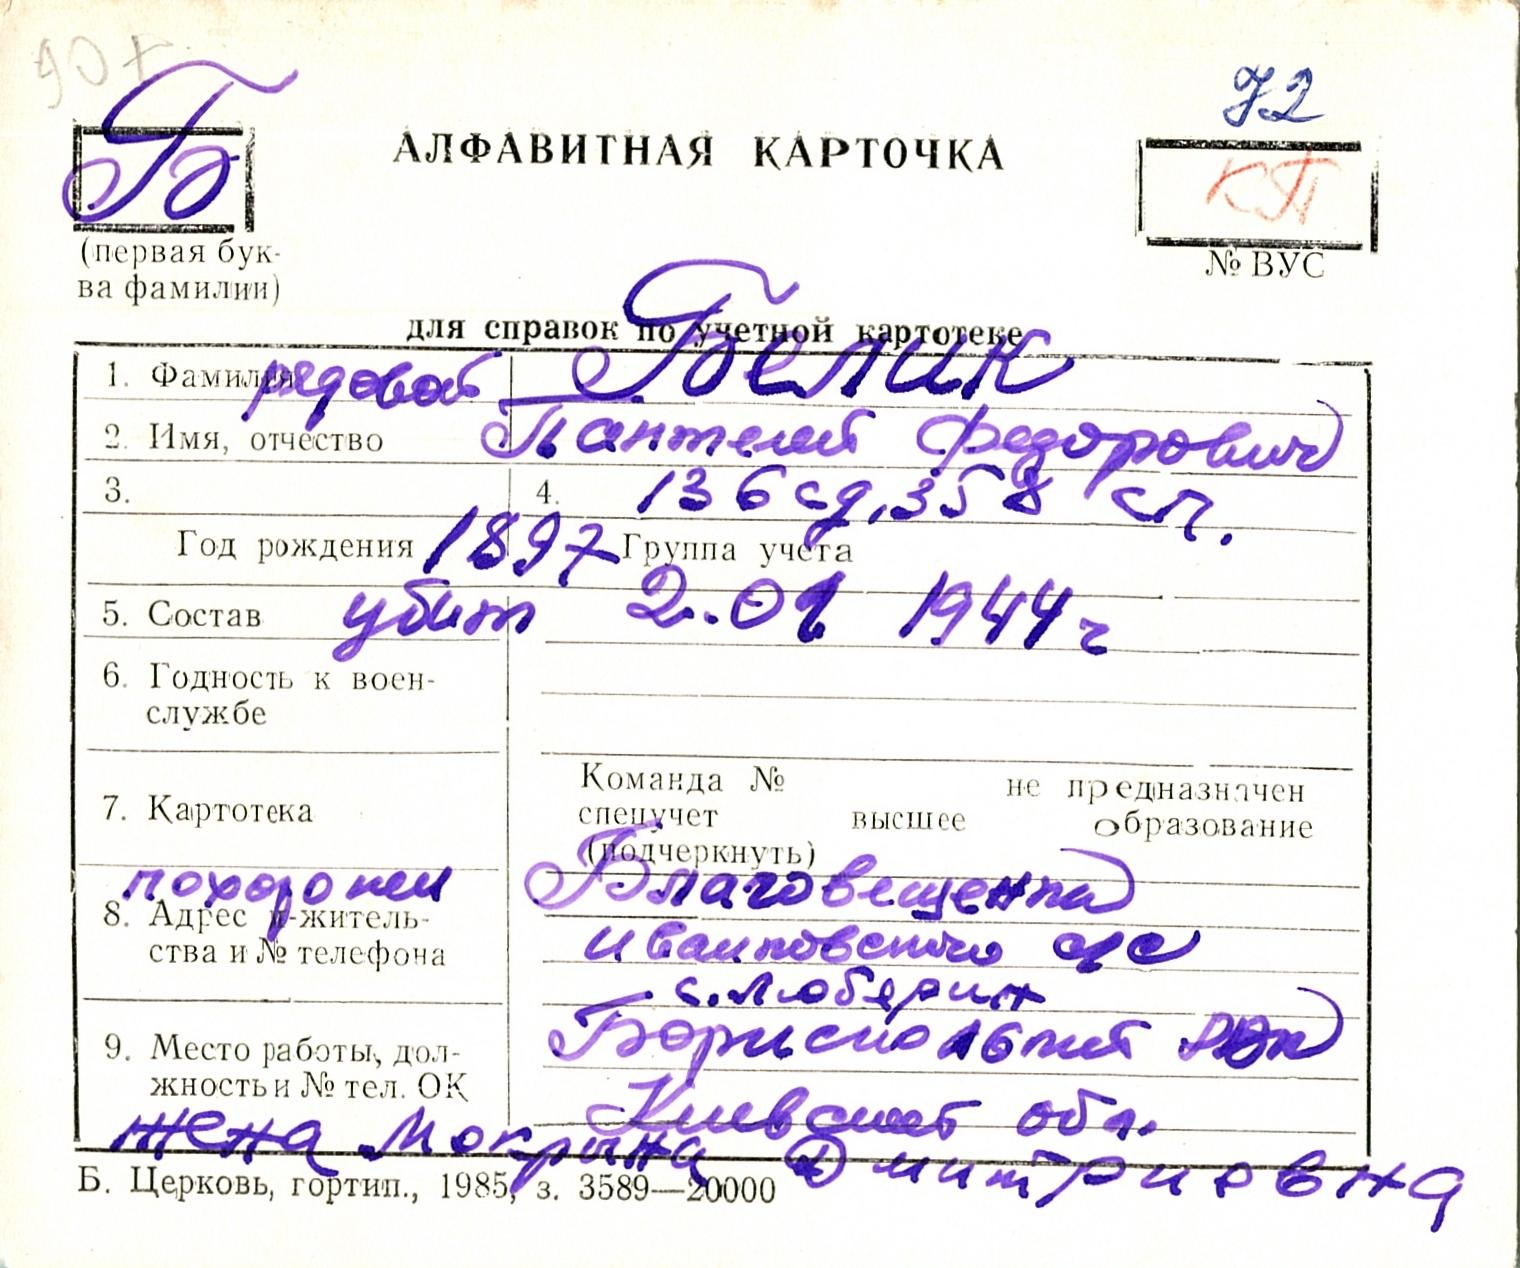 90
72
Б
АЛФАВИТНАЯ КАРТОЧКА
КП
(первая бук-
ва фамилии)
№ ВУС
для справок по учетной картотеке
1. Фамилия рядовой Белик
2. Имя, отчество Пантелей Федорович
3. 4. 136 сд, 358 сп.
Год рождения 1897 Группа учета
5. Состав убит 2.01 1944 г
6. Годность к воен-
службе
Команда № не предназначен
7. Картотека спецучет высшее образование
(подчеркнуть)
похоронен
8. Адрес и житель-
ства и № телефона
Ивановского с/с
с. Люберцы
9. Место работы, дол-
жность и № тел. ОК
Киевской обл.
жена Мокрына Дмитриовна
Б. Церковь, гортип., 1985, з. 3589—20000